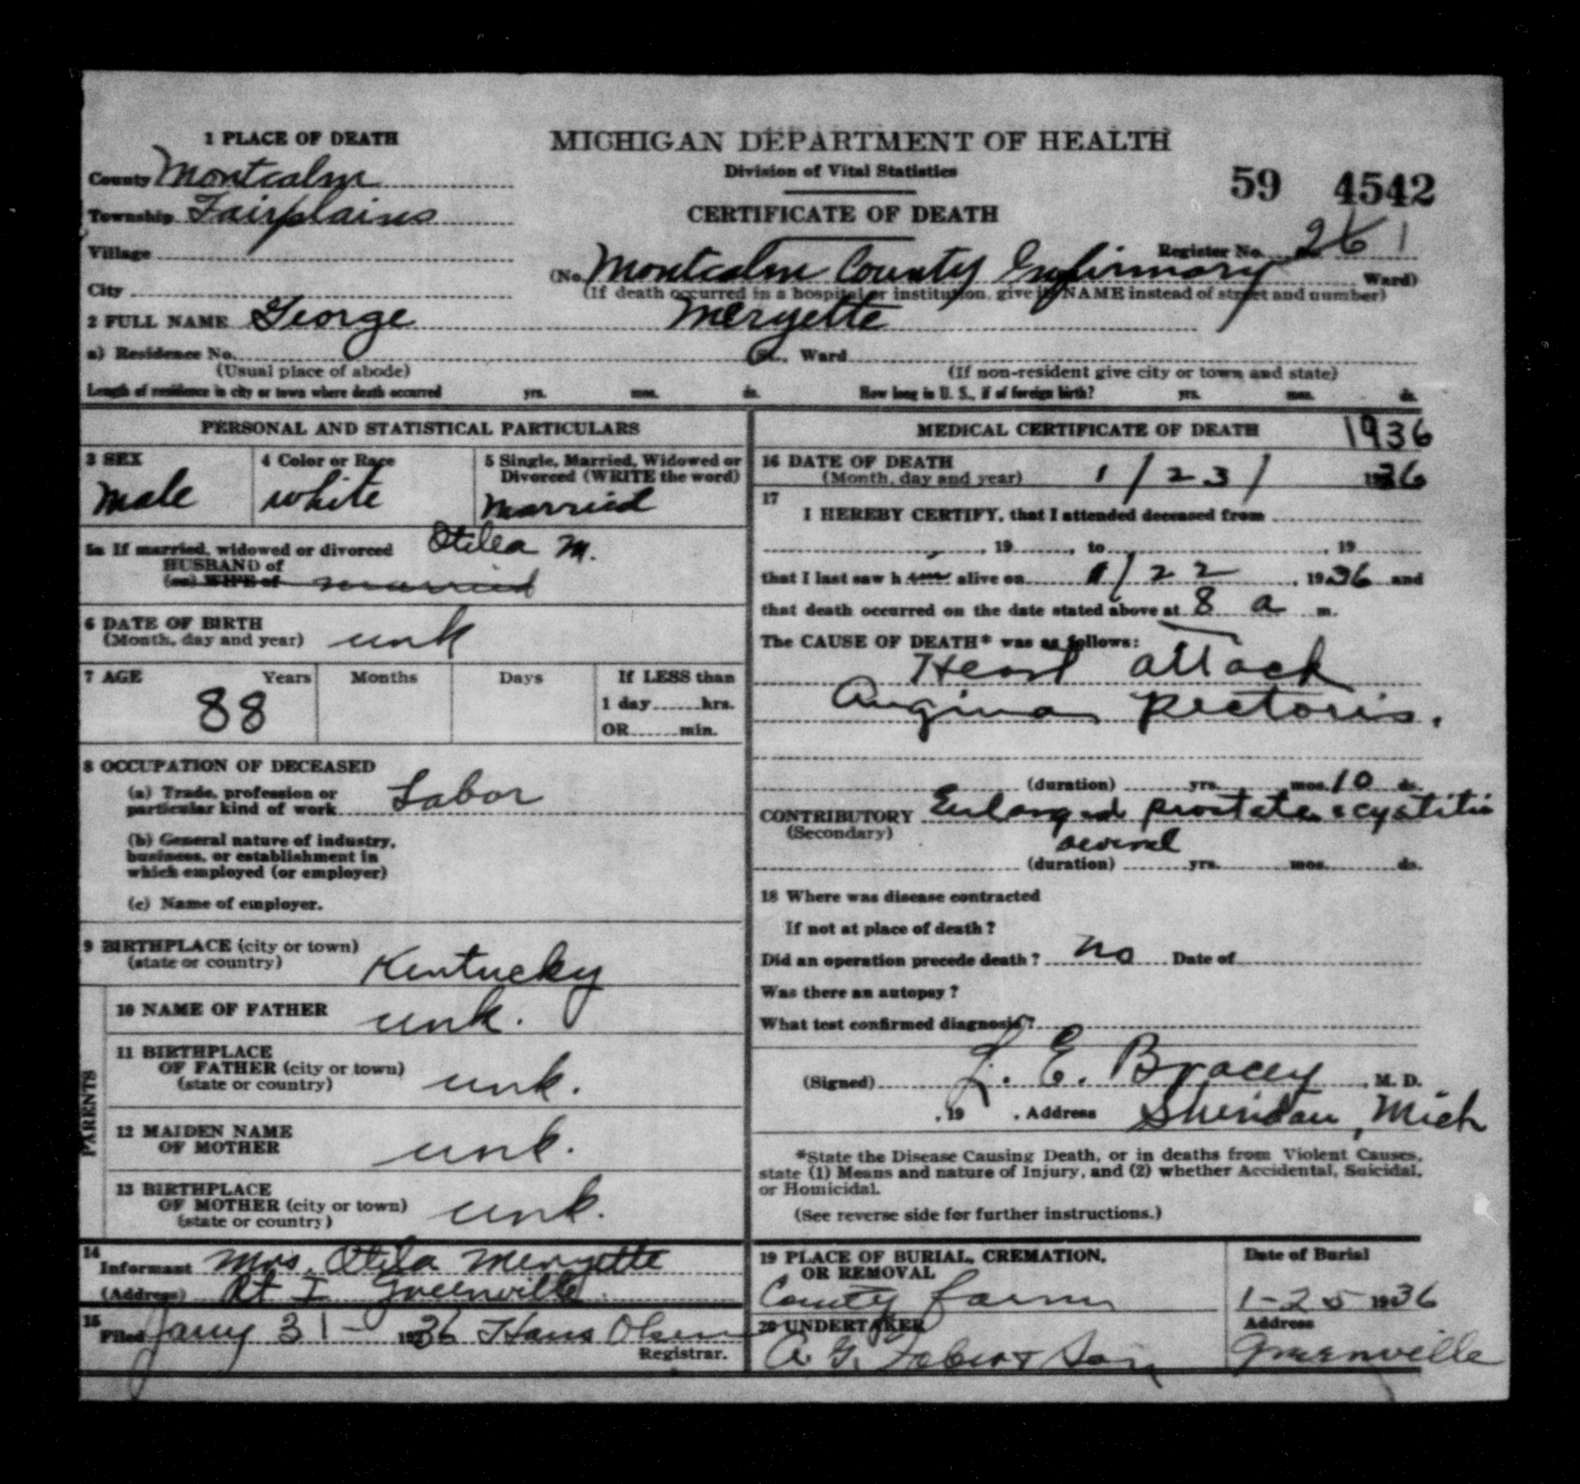 1 PLACE OF DEATH
MICHIGAN DEPARTMENT OF HEALTH
Division of Vital Statistics
County Montcalm
59 4542
Township Fairplains
CERTIFICATE OF DEATH
Village
Register No. 26 1
(No. Montcalm County Infirmary Ward)
City
(If death occurred in a hospital or institution, give its NAME instead of street and number)
2 FULL NAME George Meryette
a) Residence No. St., Ward
(Usual place of abode) (If non-resident give city or town and state)
Length of residence in city or town where death occurred yrs. mos. ds. How long in U. S., if of foreign birth? yrs. mos. ds.
PERSONAL AND STATISTICAL PARTICULARS
3 SEX 4 Color or Race 5 Single, Married, Widowed or
Divorced (WRITE the word)
Male white married
5a If married, widowed or divorced Otilea M.
HUSBAND of
(or) WIFE of married
6 DATE OF BIRTH
(Month, day and year) unk
7 AGE Years Months Days If LESS than
1 day hrs.
88
OR min.
8 OCCUPATION OF DECEASED
(a) Trade, profession or
particular kind of work Labor
(b) General nature of industry,
business, or establishment in
which employed (or employer)
(c) Name of employer.
9 BIRTHPLACE (city or town)
(state or country) Kentucky
PARENTS
10 NAME OF FATHER unk.
11 BIRTHPLACE
OF FATHER (city or town)
(state or country) unk.
12 MAIDEN NAME
OF MOTHER unk.
13 BIRTHPLACE
OF MOTHER (city or town)
(state or country) unk.
14
Informant Mrs. Otila Meryette
(Address) Rt I Greenville
15
Filed Jany 31- 1936 Hans Olsen
Registrar.
MEDICAL CERTIFICATE OF DEATH 1936
16 DATE OF DEATH
(Month, day and year) 1/23/ 1936
17
I HEREBY CERTIFY, that I attended deceased from
, 19 , to , 19
that I last saw h im alive on 1/22 , 1936 and
that death occurred on the date stated above at 8 a m.
The CAUSE OF DEATH* was as follows:
Heart attack
Angina pectoris.
(duration) yrs. mos. 10 ds.
CONTRIBUTORY Enlarged prostate & cystitis
(Secondary)
several
(duration) yrs. mos. ds.
18 Where was disease contracted
If not at place of death?
Did an operation precede death? no Date of
Was there an autopsy?
What test confirmed diagnosis?
(Signed) L. E. Bracey, M. D.
, 19 . Address Sheridan, Mich
*State the Disease Causing Death, or in deaths from Violent Causes,
state (1) Means and nature of Injury, and (2) whether Accidental, Suicidal,
or Homicidal.
(See reverse side for further instructions.)
19 PLACE OF BURIAL, CREMATION,
OR REMOVAL
Date of Burial
County farm 1-25 1936
20 UNDERTAKER Address
A. G. & Son Greenville